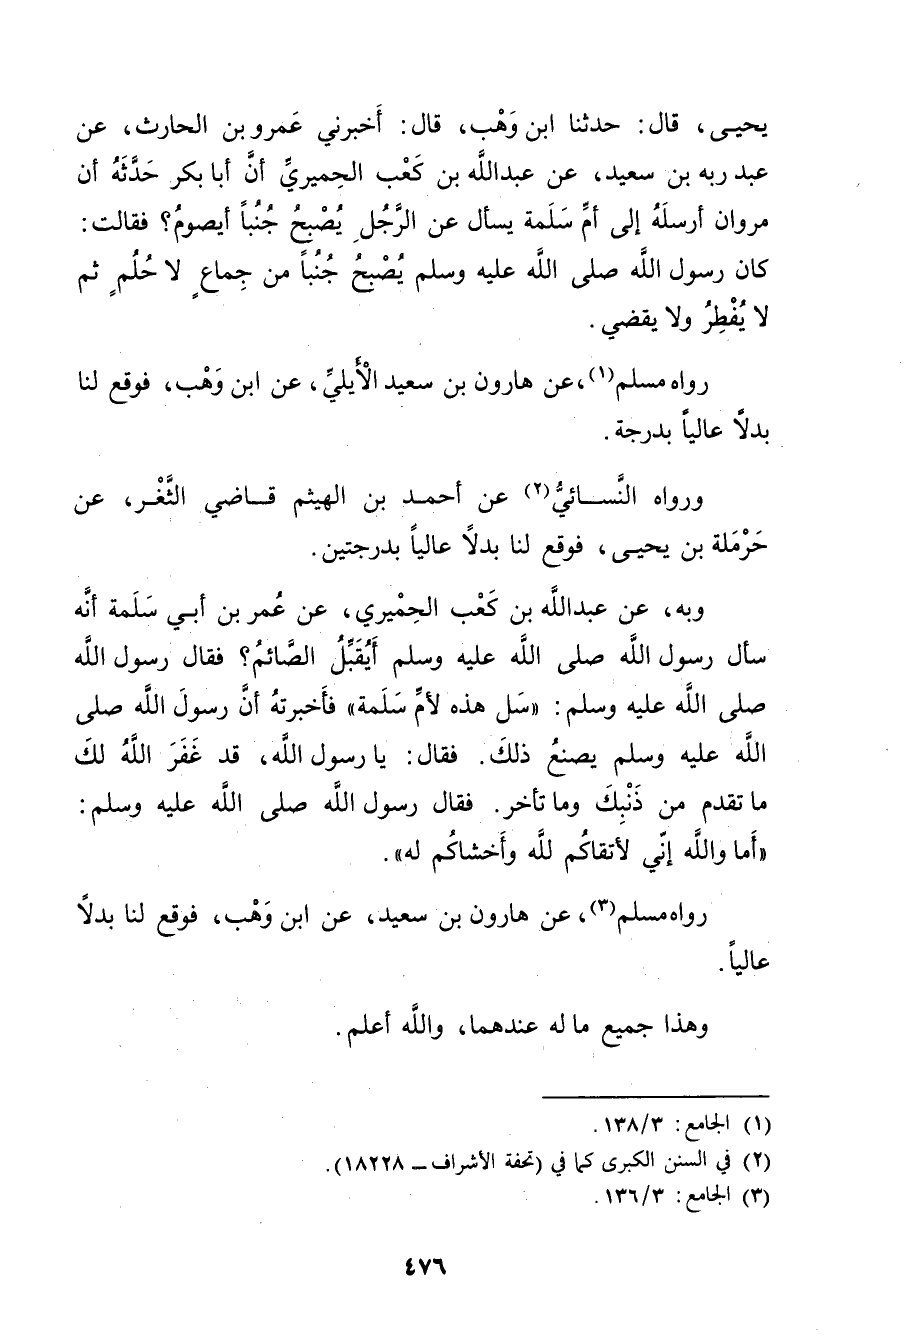 يحيـى، قال: حدثنا ابن وَهْب، قال: أَخبرني عَمرو بن الحارث، عن
عبد ربه بن سعيد، عن عبداللَّه بن كَعْب الحِميريِّ أنَّ أبا بكر حَدَّثَهُ أن
مروان أرسلَهُ إلى أمِّ سَلَمة يسأل عن الرَّجُلِ يُصْبِحُ جُنُباً أيصومُ؟ فقالت:
كان رسول اللَّه صلى اللَّه عليه وسلم يُصْبِحُ جُنُباً من جِماعٍ لا حُلُمٍ ثم
لا يُفْطِرُ ولا يقضي.
رواه مسلم(١)، عن هارون بن سعيد الْأَيليِّ، عن ابن وَهْب، فوقع لنا
بدلًا عالياً بدرجة.
ورواه النَّسائيُّ(٢) عن أحمد بن الهيثم قاضي الثَّغْر، عن
حَرْمَلة بن يحيـى، فوقع لنا بدلًا عالياً بدرجتين.
وبه، عن عبداللَّه بن كَعْب الحِمْيري، عن عُمر بن أبـي سَلَمة أنَّه
سأل رسول اللَّه صلى اللَّه عليه وسلم أَيُقَبِّلُ الصَّائمُ؟ فقال رسول اللَّه
صلى اللَّه عليه وسلم: «سَل هذه لأمِّ سَلَمة» فأَخبرتهُ أنَّ رسولَ اللَّه صلى
اللَّه عليه وسلم يصنعُ ذلكَ. فقال: يا رسول اللَّه، قد غَفَرَ اللَّهُ لكَ
ما تقدم من ذَنْبِكَ وما تأخر. فقال رسول اللَّه صلى اللَّه عليه وسلم:
«أَما واللَّه إنّي لأتقاكُم للَّه وأَخشاكُم له».
رواه مسلم(٣)، عن هارون بن سعيد، عن ابن وَهْب، فوقع لنا بدلًا
عالياً.
وهذا جميع ما له عندهما، واللَّه أعلم.
(١) الجامع: ١٣٨/٣.
(٢) في السنن الكبرى كما في (تحفة الأشراف ــ ١٨٢٢٨).
(٣) الجامع: ١٣٦/٣.
٤٧٦